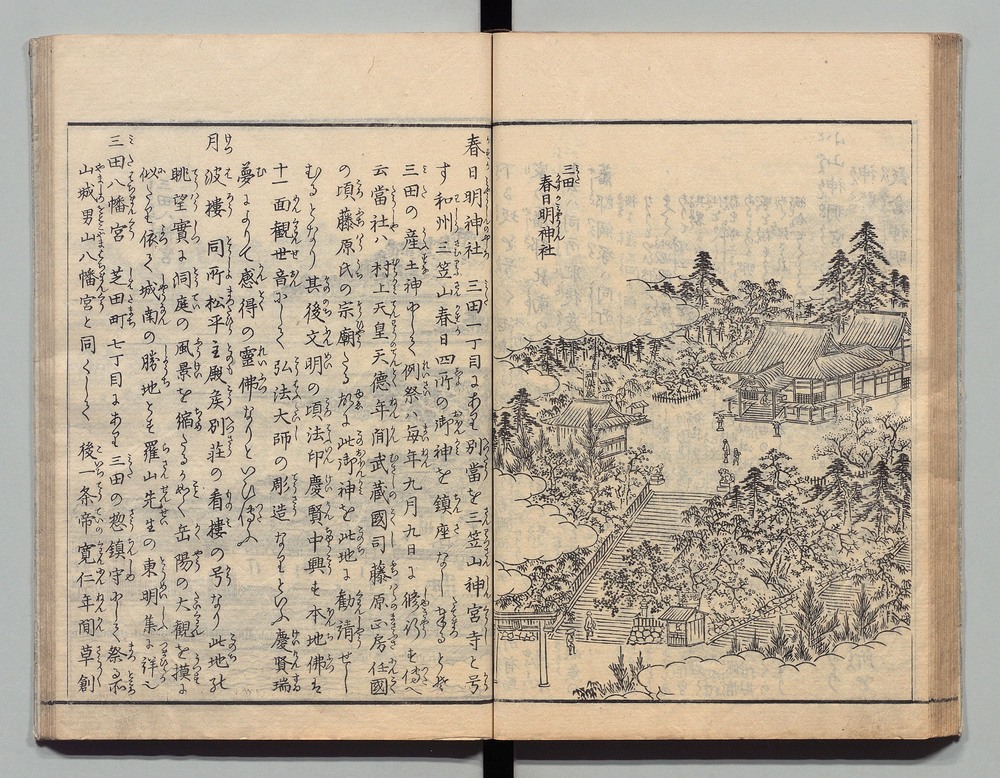 三田
春日明神社
春日明神社 三田一丁目にあり別當を三笠山神宮寺と号
す和州三笠山春日四所の御神を鎮座なし奉るとぞ
三田の産土神にして例祭ハ毎年九月九日に修行を傳へ
云當社ハ村上天皇天德年間武蔵國司藤原正房任國
の頃藤原氏の宗廟たる故に此御神を此地に勧請せし
むるとなり其後文明の頃法印慶賢中興も本地佛は
十一面観世音にして弘法大師の彫造なりといふ慶賢瑞
夢によりて感得の靈佛なりといひ傳ふ
月波樓 同所松平主殿侯別荘の看樓の号なり此地の
眺望實に洞庭の風景を縮たるがごとく岳陽の大観を摸に
似たり依て城南の勝地とも羅山先生の東明集に詳也
三田八幡宮 芝田町七丁目にあり三田の惣鎮守にして祭る所
山城男山八幡宮と同くして 後一条帝寛仁年間草創